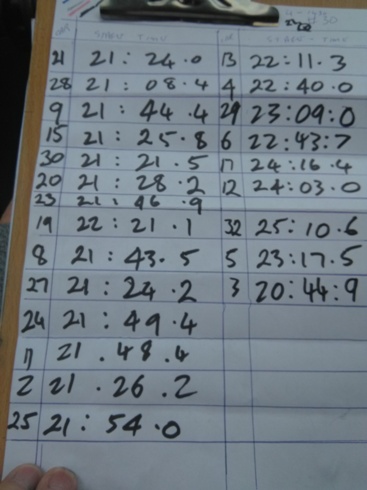 21 21:24.0
28 21:08.4
9 21:44.4
15 21:25.8
30 21:21.5
20 21:28.2
23 21:46.9
19 22:21.1
8 21:43.5
27 21:24.2
24 21:49.4
11 21.48.4
2 21.26.2
25 21:54.0
13 22:11.3
4 22:40.0
29 23:09:0
6 22:43:7
17 24:16.4
12 24:03.0
32 25:10.6
5 23:17.5
3 20:44:9